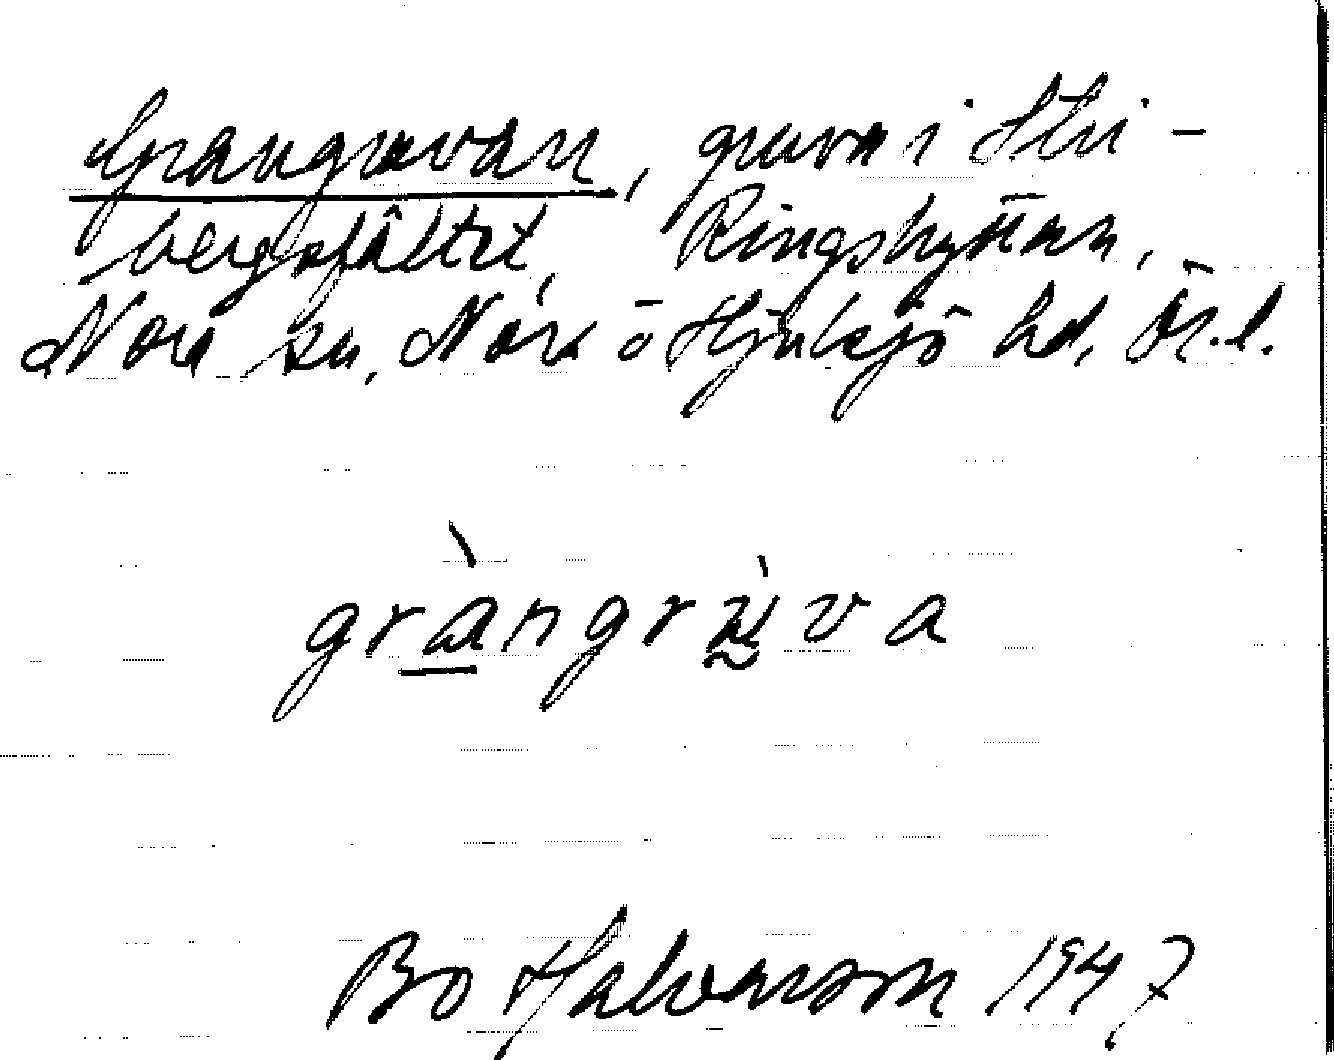 Grangruvan, gruva i Stri-
bergsfältet, Ringshyttan,
Nora sn, Nora o Hjulsjö hd, Ör.l.
gràngrùva
Bo Halvarson 1947